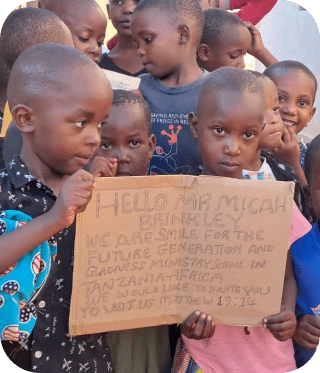 RED-EYE
FROG IN
BELIZE
HELLO MR MICAH
BRINKLEY
WE ARE SMILE FOR THE
FUTURE GENERATION AND
GLADNESS MINISTRY SCHOOL IN
TANZANIA-AFRICA
WE WOULD LIKE TO INVITE YOU
TO VISIT US MATTHEW 19:14